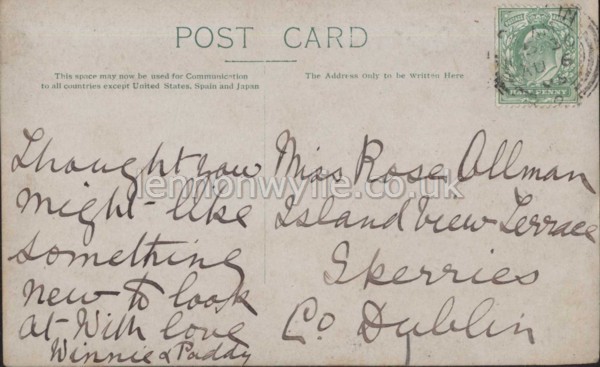 POST CARD
This space may now be used for Communication
to all countries except United States, Spain and Japan
The Address only to be Written Here
HALFPENNY
Thought you
might like
something
new to look
at With love
Winnie & Paddy
Miss Rose Ollman
Island View Terrace
Skerries
Co Dublin
lennonwylie.co.uk